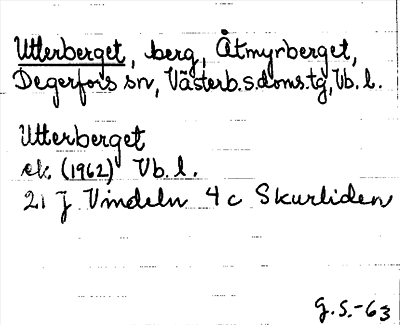 Utterberget, berg, Åtmyrberget,
Degerfors sn, Västerb.s.doms.tg, Vb. l.
Utterberget
ek. (1962) Vb. l.
21 J Vindeln 4 c Skurliden
G.S.-63